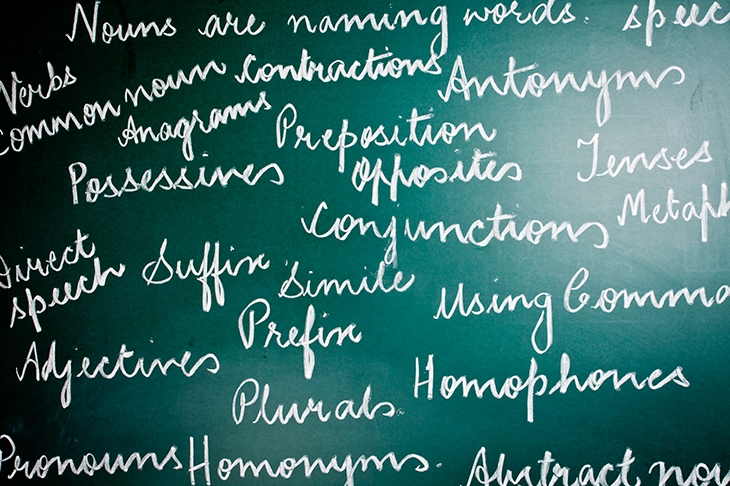 Nouns are naming words. speec
Verbs
common noun contractions Antonyms
Anagrams Preposition
Possessives opposites Tenses
conjunctions Metaph
Direct
speech Suffix Simile Using Comma
Prefix
Adjectives Homophones
Plurals
Pronouns Homonyms. Abstract nou